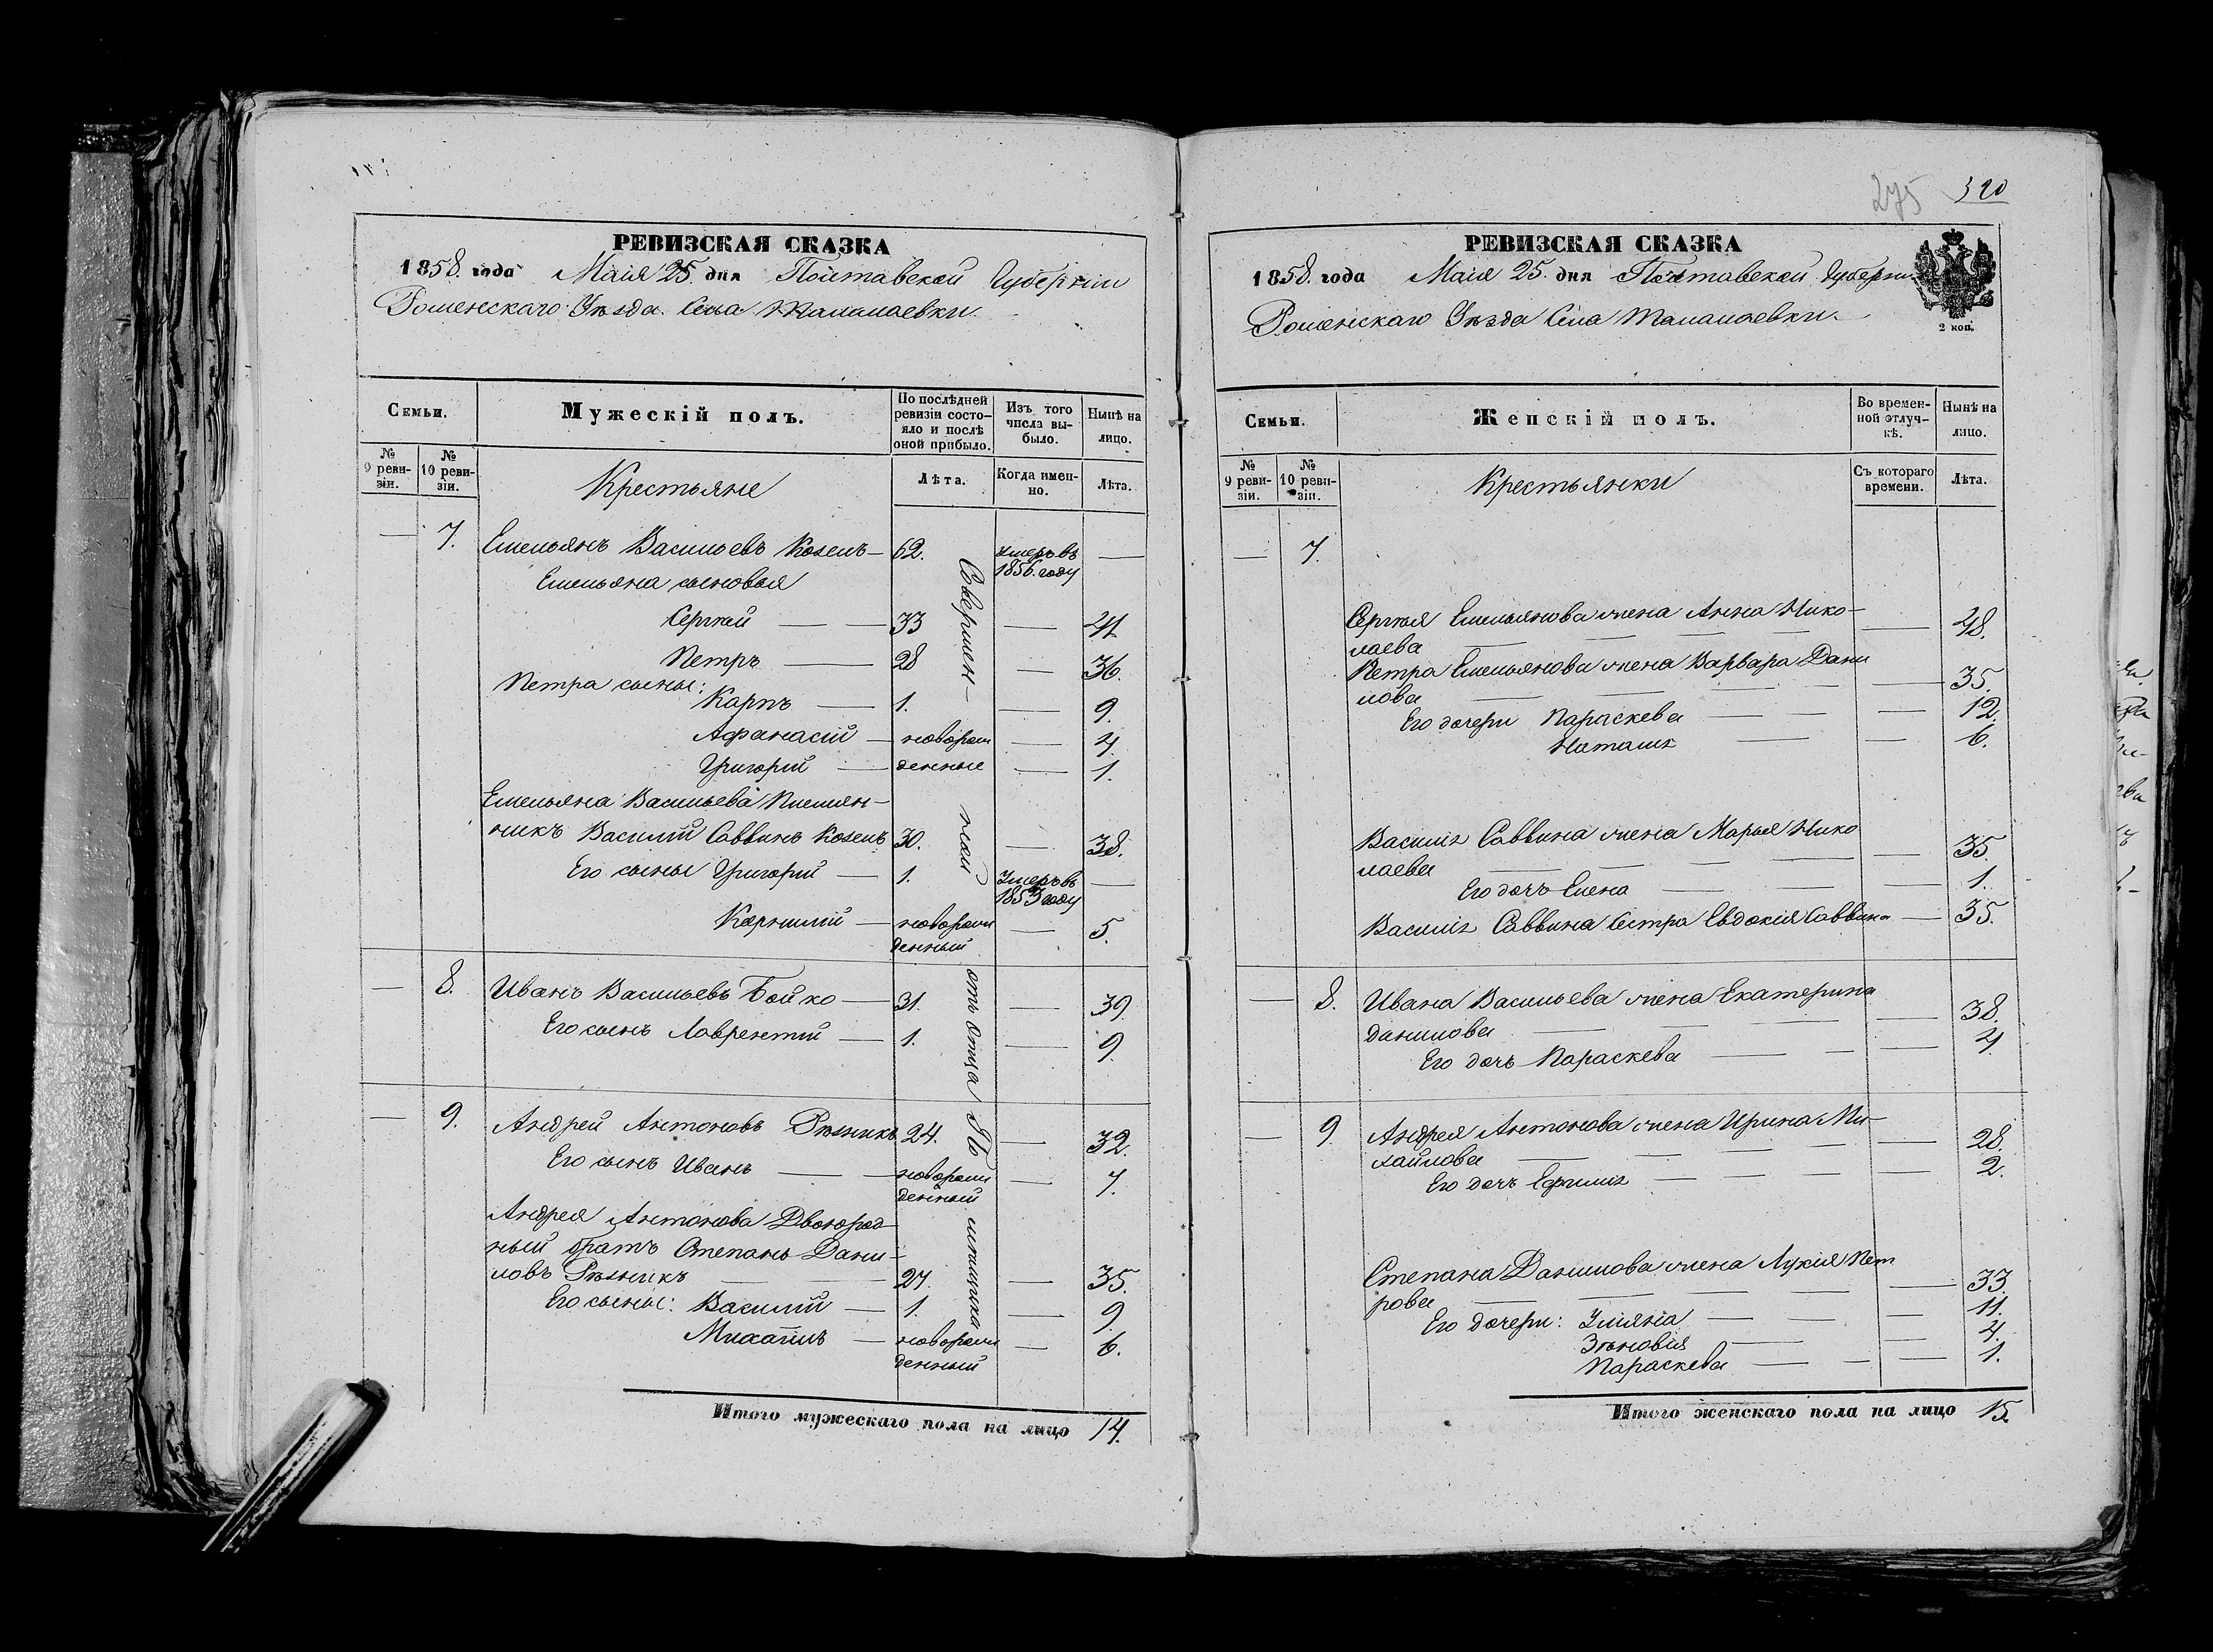 РЕВИЗСКАЯ СКАЗКА
1858. года Маія 25. дня Полтавской Губерніи
Роменскаго Уѣзда. Села Талалаевки.
Семьи.
Мужескій полъ.
По послѣдней ревизіи состо-
яло и послѣ
оной прибыло.
Изъ того
числа вы-
было.
Нынѣ на
лицо.
№
9 реви-
зіи.
№
10 реви-
зіи.
Крестьяне
Лѣта.
Когда имен-
но.
Лѣта.
— 7. Емельянъ Васильевъ Козелъ — 62. Умеръ въ —
1856. году
Емельяна сыновья
Сергѣй — — 33 — 41
Петръ — 28 — 36.
Петра сыны:
Карпъ — 1. — 9.
Афанасій — новорож — 4.
Григорій — денные — 1.
Емельяна Васильева Племян-
никъ Василій Саввинъ Козелъ 30. — 38.
Его сыны Григорій — 1. Умеръ въ —
1853 году
Карнилій — новорож — 5.
денный
— 8. Иванъ Васильевъ Бойко — 31. — 39.
Его сынъ Лаврентій — 1. — 9.
— 9. Андрей Антоновъ Рѣзникъ 24. — 32.
Его сынъ Иванъ — новорож — 7.
денный
Андрея Антонова Двоюрод-
ный братъ Степанъ Дани-
ловъ Рѣзникъ — — 27 — 35.
Его сыны: Василій — 1. — 9.
Михаилъ — новорож — 6.
денный
Совершен-
ной
отъ отца Яь
Итого мужескаго пола на лицо 14.
275 320
РЕВИЗСКАЯ СКАЗКА
1858. года Маія 25. дня Полтавской Губерніи
Роменскаго Уѣзда Села Талалаевки.
2 коп.
Семьи.
Женскій полъ.
Во времен-
ной отлуч-
кѣ.
Нынѣ на
лицо.
№
9 реви-
зіи.
№
10 реви-
зіи.
Крестьянки
Съ котораго
времени.
Лѣта.
— 7.
Сергѣя Емельянова жена Анна Нико-
лаева — — — — — 48.
Петра Емельянова жена Варвара Дани
лова — — — — — 35.
Его дочери Параскева — — — 12.
Наталія — — — 6.
Василія Саввина жена Марья Нико
лаева — — — — — 35.
Его дочь Елена — — — 1.
Василія Саввина Сестра Евдокія Саввина — 35.
— 8. Ивана Васильева жена Екатерина
Данилова — — — — 38.
Его дочь Параскева — — — 4.
— 9. Андрея Антонова жена Ирина Ми-
хайлова — — — — 28.
Его дочь Ефимія — — — 2.
Степана Данилова жена Лукія Пет
рова — — — — — 33.
Его дочери: Уліяна — — — 11.
Зѣновія — — — 4.
Параскева — — — 1.
Итого женскаго пола на лицо 15.